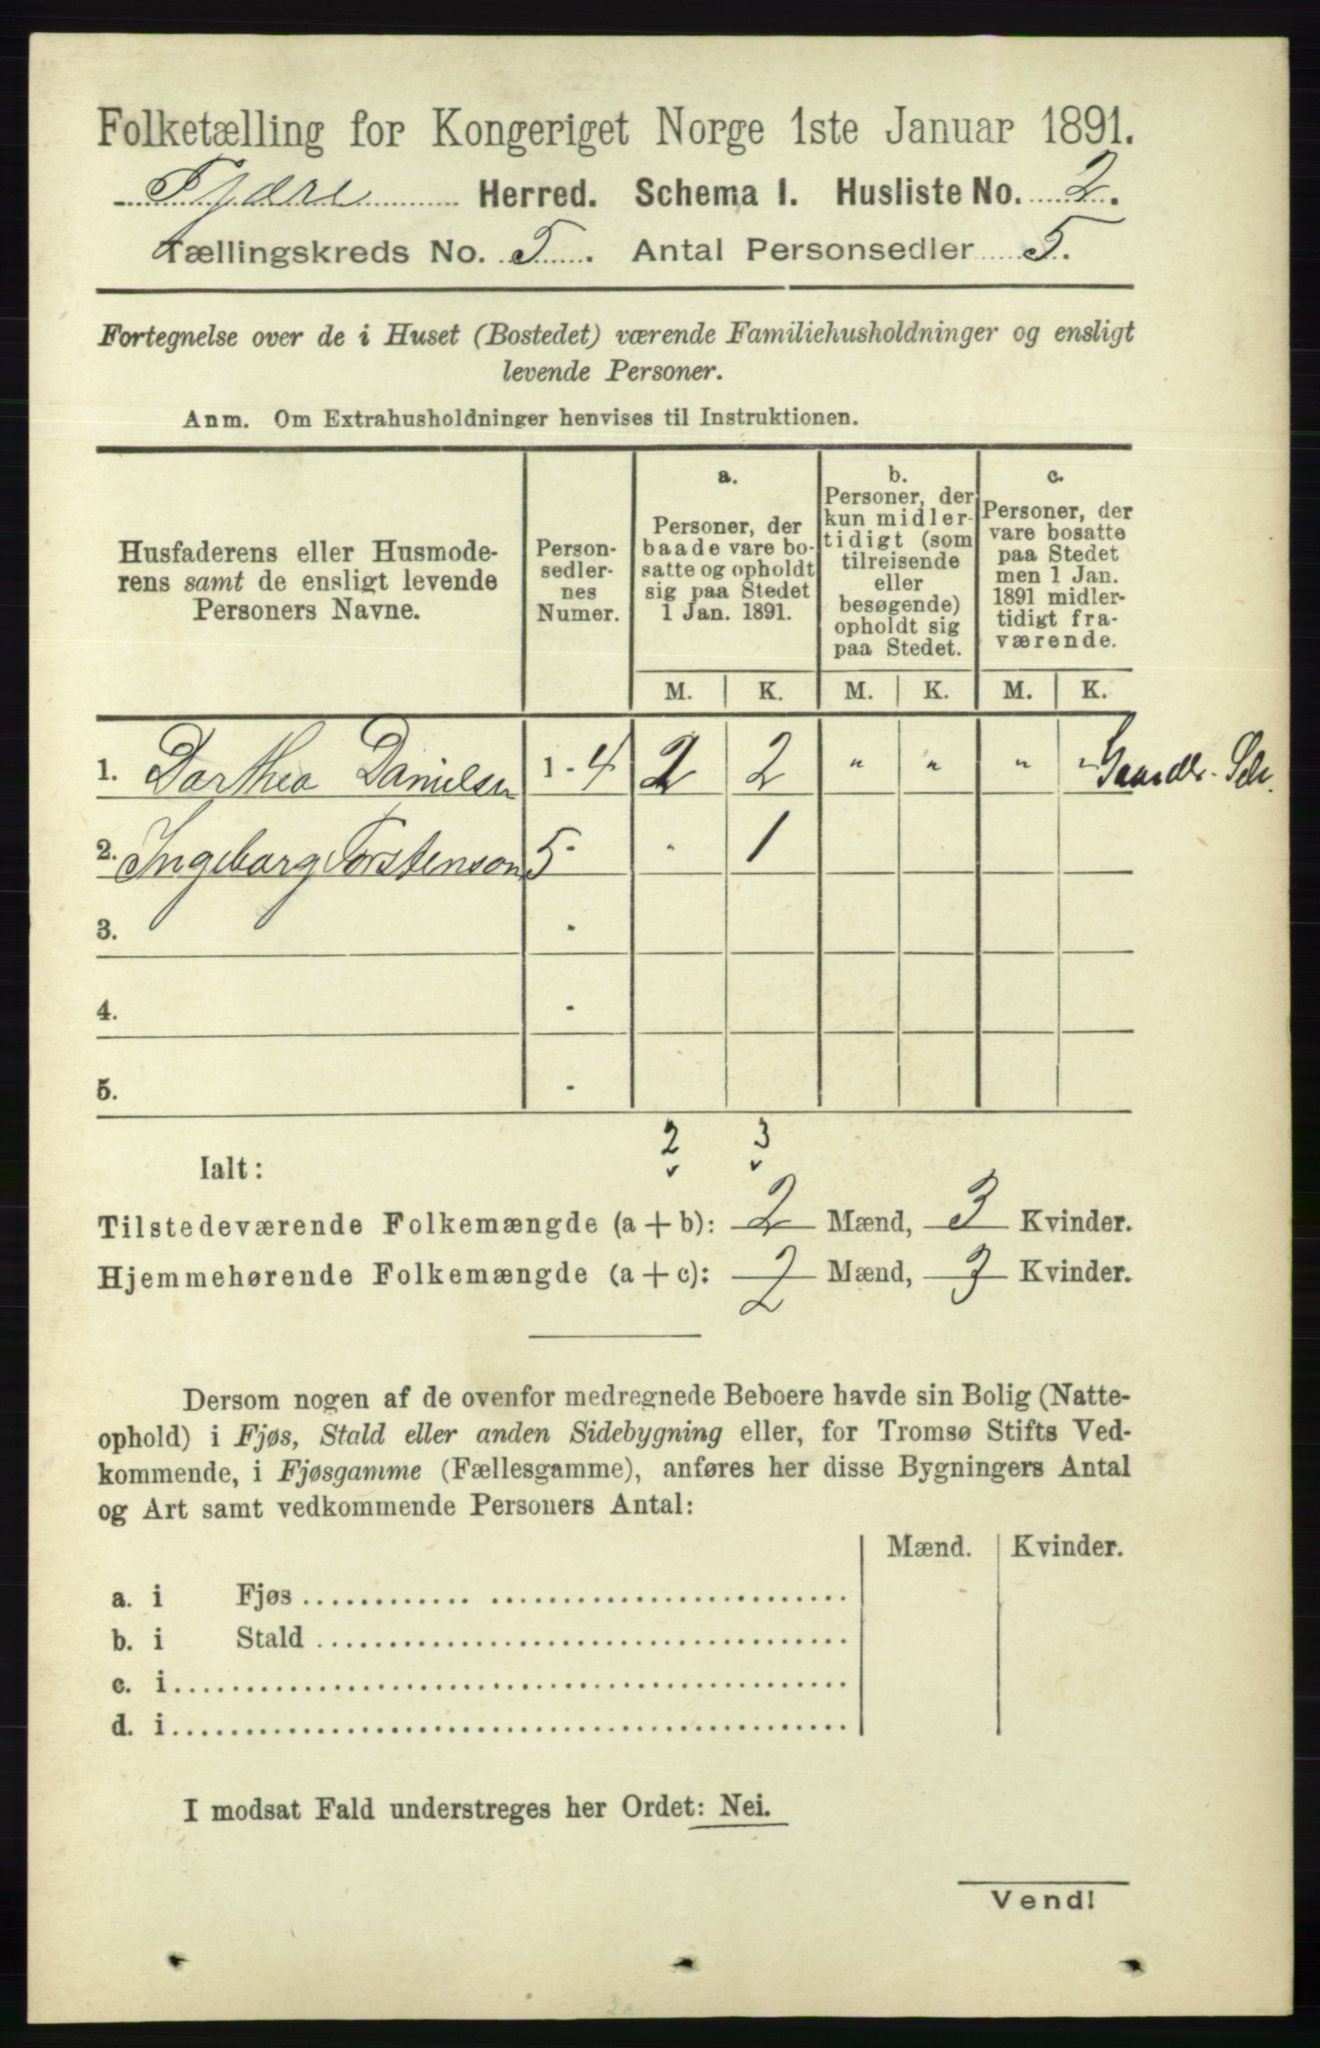 Folketælling for Kongeriget Norge 1ste Januar 1891.
Fjære Herred. Schema I. Husliste No. 2.
Tællingskreds No. 5. Antal Personsedler 5.
Fortegnelse over de i Huset (Bostedet) værende Familiehusholdninger og ensligt
levende Personer.
Anm. Om Extrahusholdninger henvises til Instruktionen.
Husfaderens eller Husmode-
rens samt de ensligt levende
Personers Navne.
Person-
sedler-
nes
Numer.
a.
Personer, der
baade vare bo-
satte og opholdt
sig paa Stedet
1 Jan. 1891.
b.
Personer, der
kun midler-
tidigt (som
tilreisende
eller
besøgende)
opholdt sig
paa Stedet.
c.
Personer, der
vare bosatte
paa Stedet
men 1 Jan.
1891 midler-
tidigt fra-
værende.
M. K. M. K. M. K.
1. Dorthea Danielsen 1 - 4 2 2 " " " "
2. Ingeborg Torstenson 5 - - 1
3. -
4. -
5. -
2 3
Ialt:
Tilstedeværende Folkemængde (a + b): 2 Mænd, 3 Kvinder.
Hjemmehørende Folkemængde (a + c): 2 Mænd, 3 Kvinder.
Dersom nogen af de ovenfor medregnede Beboere havde sin Bolig (Natte-
ophold) i Fjøs, Stald eller anden Sidebygning eller, for Tromsø Stifts Ved-
kommende, i Fjøsgamme (Fællesgamme), anføres her disse Bygningers Antal
og Art samt vedkommende Personers Antal:
Mænd. Kvinder.
a. i Fjøs
b. i Stald
c. i
d. i
I modsat Fald understreges her Ordet: Nei.
Vend!